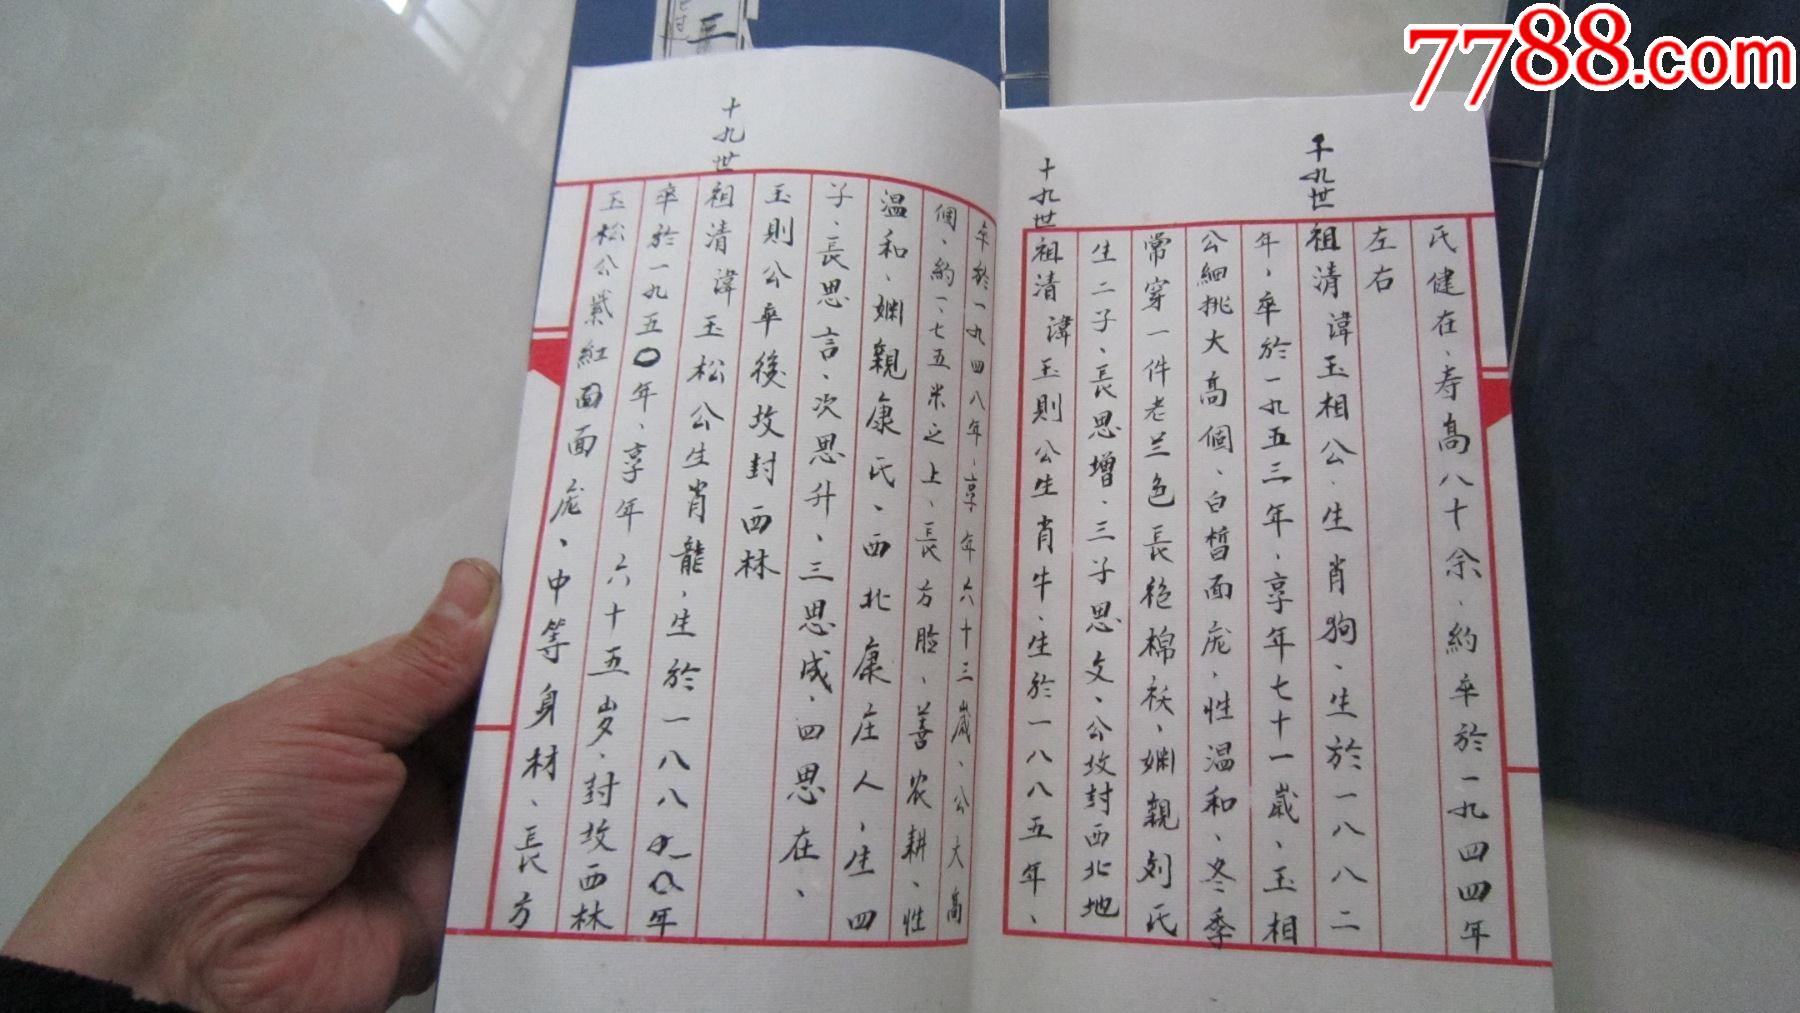 7788.com
三
氏健在、寿高八十余、約卒於一九四四年
左右
十九世
祖清諱玉相公、生肖狗、生於一八八二
年、卒於一九五三年、享年七十一歳、玉相
公細挑大高個、白晳面庞、性温和、冬季
常穿一件老兰色長袍棉袄、婣親刘氏
生二子、長思增、三子思文、公坟封西北地
十九世
祖清諱玉則公生肖牛、生於一八八五年、
卒於一九四八年、享年六十三歳、公大高
個、約一、七五米之上、長方脸、善农耕、性
温和、婣親康氏、西北康庄人、生四
子、長思言、次思升、三思成、四思在、
玉則公卒後坟封西林
十九世
祖清諱玉松公生肖龍、生於一八八九〇年
卒於一九五〇年、享年六十五岁、封坟西林
玉松公紫紅面面庞、中等身材、長方